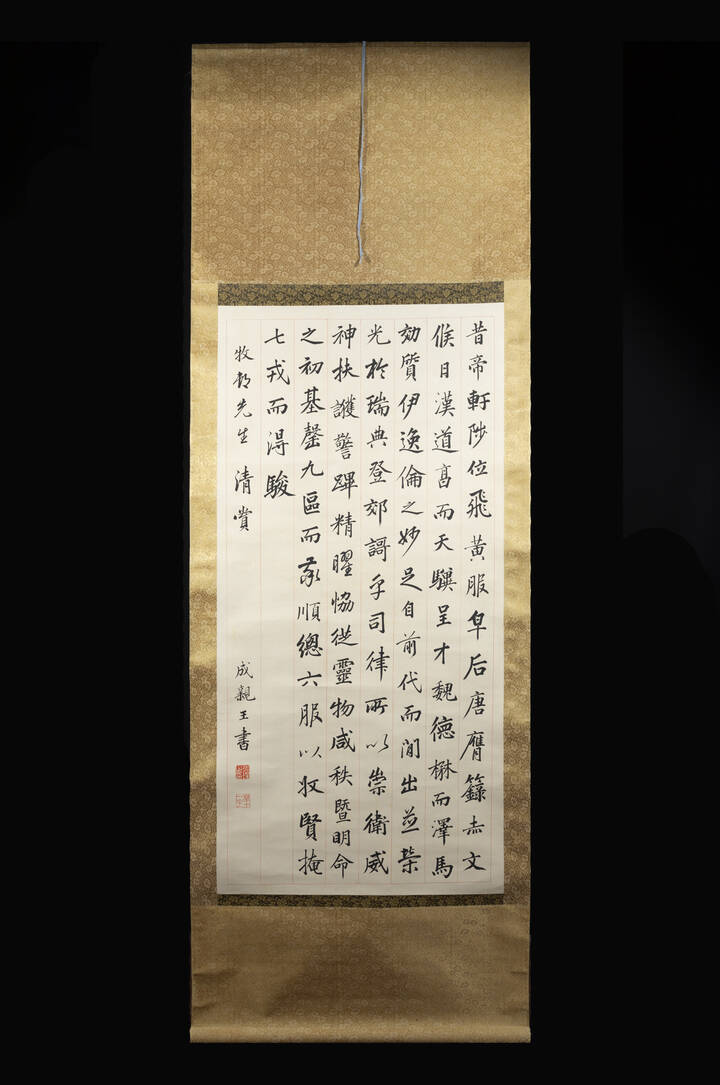 昔帝軒陟位飛黃服皁后唐膺籙赤文
候日漢道高而天驥呈才魏德楙而澤馬
効質伊逸倫之妙足自前代而閒出並榮
光於瑞典登郊謌乎司律所以崇衛威
神扶護警蹕精曜恊從靈物咸秩暨明命
之初基罄九區而率順總六服以收賢掩
七戎而得駿
牧邨先生 清賞
成親王書